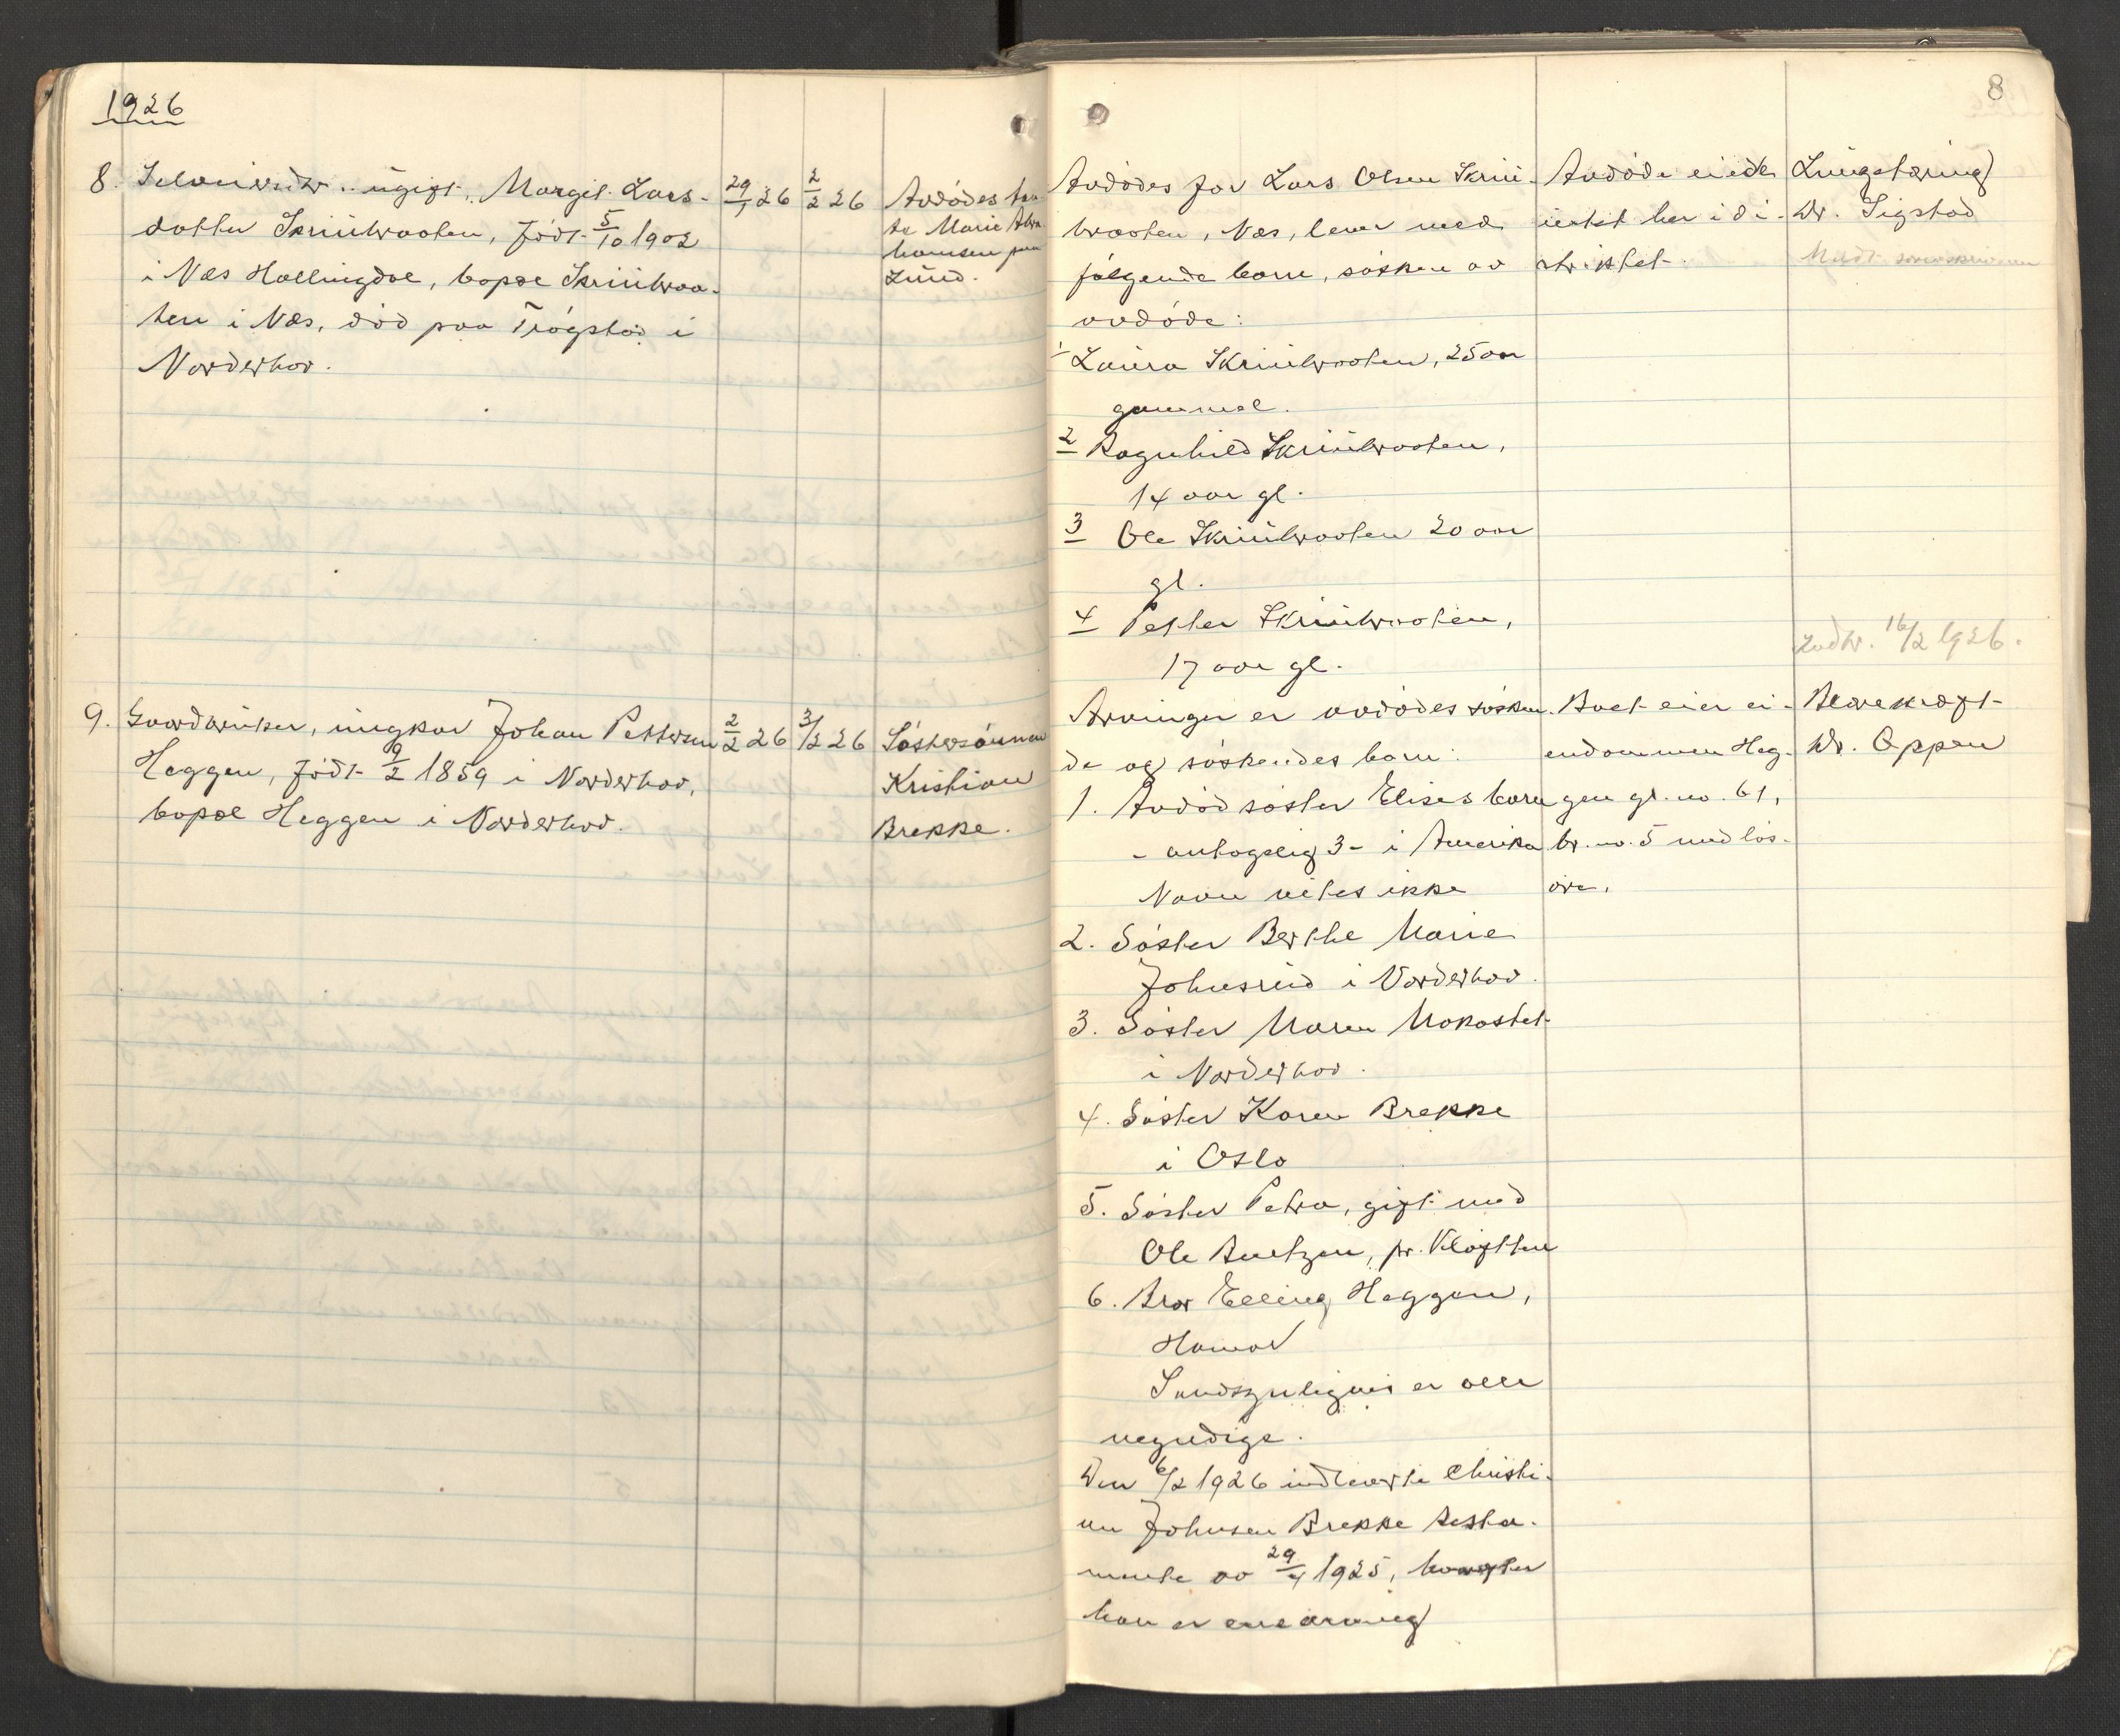 1926
8
8. Selveierdtr. ugift, Margit Lars-
datter Skrinbraaten, født 5/10 1902
i Næs Hallingdal, bopæl Skrinbraa-
ten i Næs, død paa Trøgstad i
Norderhov.
29/1 26
2/2 26
Avdødes tan-
te Marie Abra-
hamsen paa
Lund.
Avdødes far Lars Olsen Skrin-
braaten, Næs, lever med
følgende barn, søsken av
avdøde:
1 Laura Skrinbraaten, 25 aar
gammel.
2 Ragnhild Skrinbraaten,
14 aar gl.
3 Ole Skrinbraaten 20 aar
gl.
4 Petter Skrinbraaten,
17 aar gl.
Avdøde eiede
intet her i di-
striktet.
Lungetæring
Dr. Sigstad
Meldt sorenskriveren
Indtr. 16/2 1926.
9. Gaardbruker, ungkar Johan Pettersen
Heggen, født 9/2 1859 i Norderhov,
bopæl Heggen i Norderhov.
2/2 26
3/2 26
Søstersønnen
Kristian
Brekke.
Arvinger er avdødes søsken-
de og søskendes barn:
1. Avdød søster Elises barn
- antagelig 3 - i Amerika
Navn vites ikke
2. Søster Berthe Marie
Johnsrud i Norderhov.
3. Søster Maren Mokastet
i Norderhov.
4. Søster Karen Brekke
i Oslo
5. Søster Petra, gift med
Ole Antzen, pr. Kløften
6. Bror Elling Heggen,
Hamar
Sandsynligvis er alle
myndige.
Den 6/2 1926 indleverte Christi-
an Johnsen Brekke testa-
mente av 29/4 1925, hvorefter
han er enearving
Boet eier ei-
endommen Heg-
gen gr. no. 61,
br. no. 5 med løs-
øre.
Blærekræft
Dr. Oppen